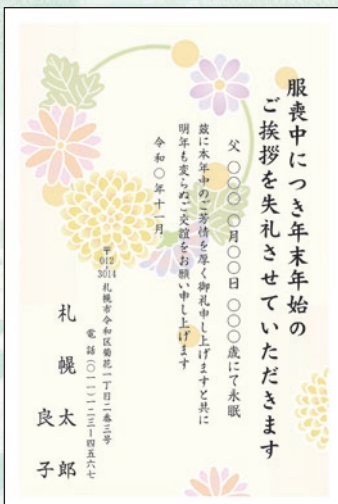 服喪中につき年末年始の
ご挨拶を失礼させていただきます
父 〇〇〇 〇月〇〇日 〇〇〇歳にて永眠
茲に本年中のご芳情を厚く御礼申し上げますと共に
明年も変らぬご交誼をお願い申し上げます
令和〇年十一月
〒012-3014
札幌市令和区菊花一丁目二番三号
電話(〇一一)一二三―四五六七
札幌太郎
良子